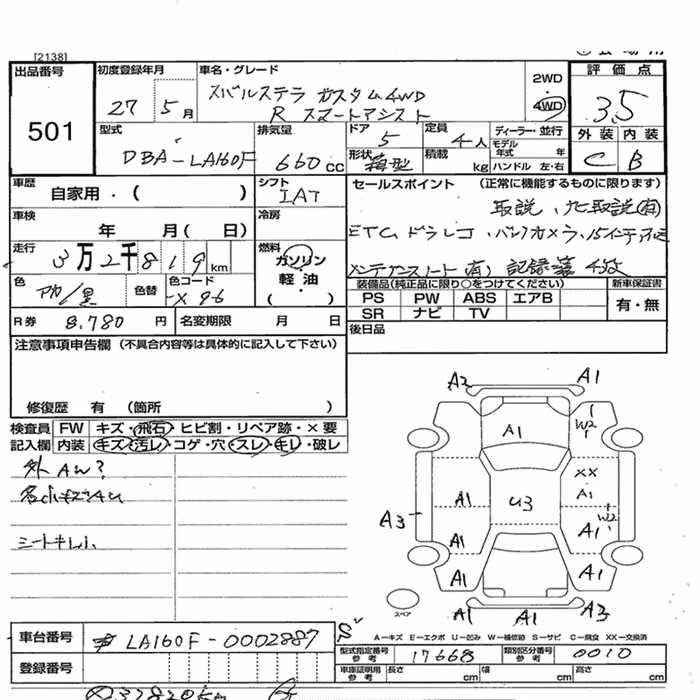 [2138]
出品番号
501
初度登録年月
27 5 月
車名・グレード
スバルステラ カスタム4WD
R スマートアシスト
2WD
4WD
評価点
3.5
外装 内装
C B
型式
DBA-LA160F
排気量
660 cc
ドア
5
定員
4人
形状
箱型
積載
kg
ディーラー・並行
モデル
年式 年
ハンドル 左・右
車歴
自家用・( )
シフト
IAT
車検
年 月( 日)
冷房
走行
3万2千819 km
燃料
ガソリン
軽油
( )
色
アカ/黒
色替
色コード
X96
R券 8,780 円
名変期限 月 日
セールスポイント (正常に機能するものに限ります)
取説、ナビ取説(有)
ETC、ドラレコ、バックカメラ、
メンテナンスノート(有) 記録簿
装備品(純正品に限り○をつけてください)
PS PW ABS エアB
SR ナビ TV
新車保証書
有・無
後日品
注意事項申告欄 (不具合内容等は具体的に記入して下さい)
修復歴 有 (箇所 )
検査員
記入欄
FW キズ・飛石・ヒビ割・リペア跡・×要
内装 キズ・汚レ・コゲ・穴・スレ・キレ・破レ
外AW?
各小キズAU
シートキレ小
A2 A1
A1
W2
XX
A1
A1
U3
A3
W2
A1
A1
A1
A1
A1 A1 A3
スペア
A−キズ E−エクボ U−凹み W−補修跡 S−サビ C−腐食 XX−交換済
車台番号
LA160F-0002887
登録番号
型式指定番号
参考
17668
類別区分番号
参考
0010
車庫証明用
参考
長さ cm 幅 cm 高さ cm